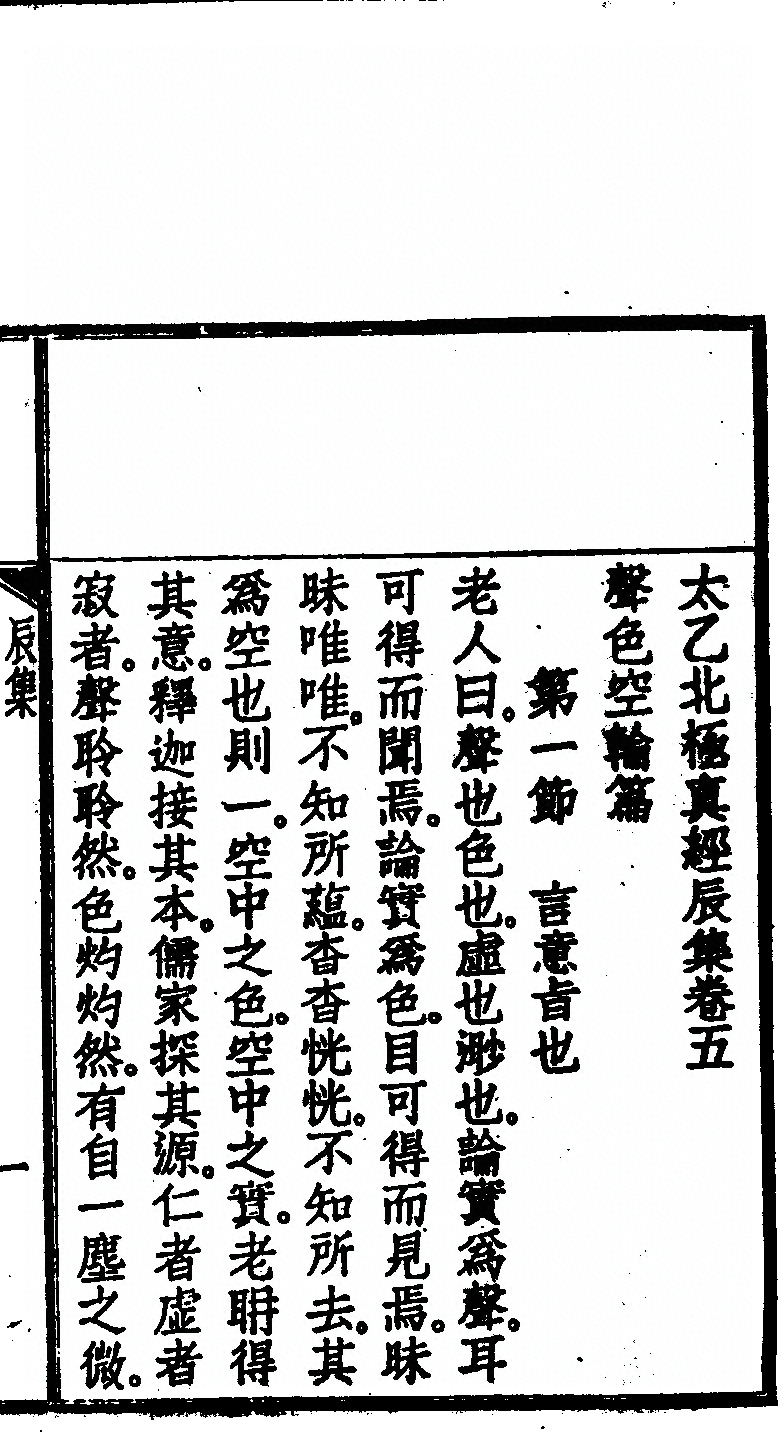 太乙北極真經辰集卷五
聲色空輪篇
第一節　言意旨也
老人曰。聲也色也。虛也渺也。論實爲聲。耳
可得而聞焉。論實爲色。目可得而見焉。昧
昧唯唯。不知所蘊。杳杳恍恍。不知所去。其
爲空也則一。空中之色。空中之實。老聃得
其意。釋迦接其本。儒家探其源。仁者虛者
寂者。聲聆聆然。色灼灼然。有自一塵之微。
辰集
一